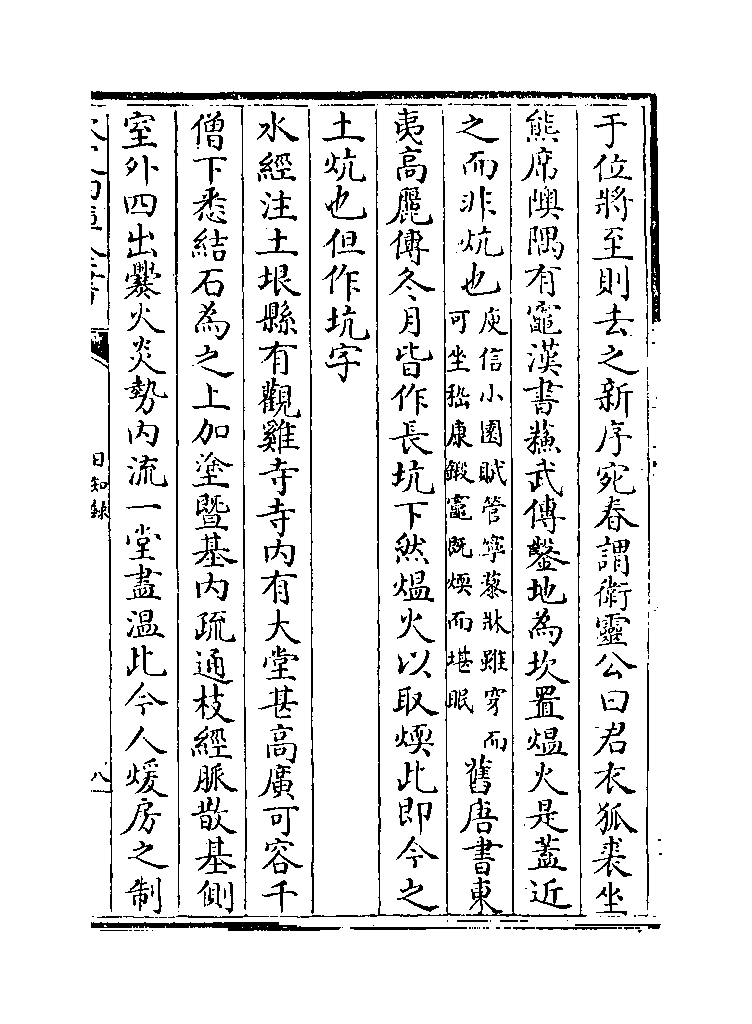 于位將至則去之新序宛春謂衛靈公曰君衣狐裘坐
熊席隩隅有竈漢書蘇武傳鑿地為坎置熅火是蓋近
之而非炕也庾信小園賦管寧藜牀雖穿而
可坐嵇康鍛竈既煗而堪眠
舊唐書東
夷高麗傳冬月皆作長坑下然熅火以取煗此即今之
土炕也但作坑字
水經注土垠縣有觀雞寺寺内有大堂甚高廣可容千
僧下悉結石為之上加塗塈基内疏通枝經脈散基側
室外四出爨火炎勢内流一堂盡温此今人煖房之制
日知錄
八